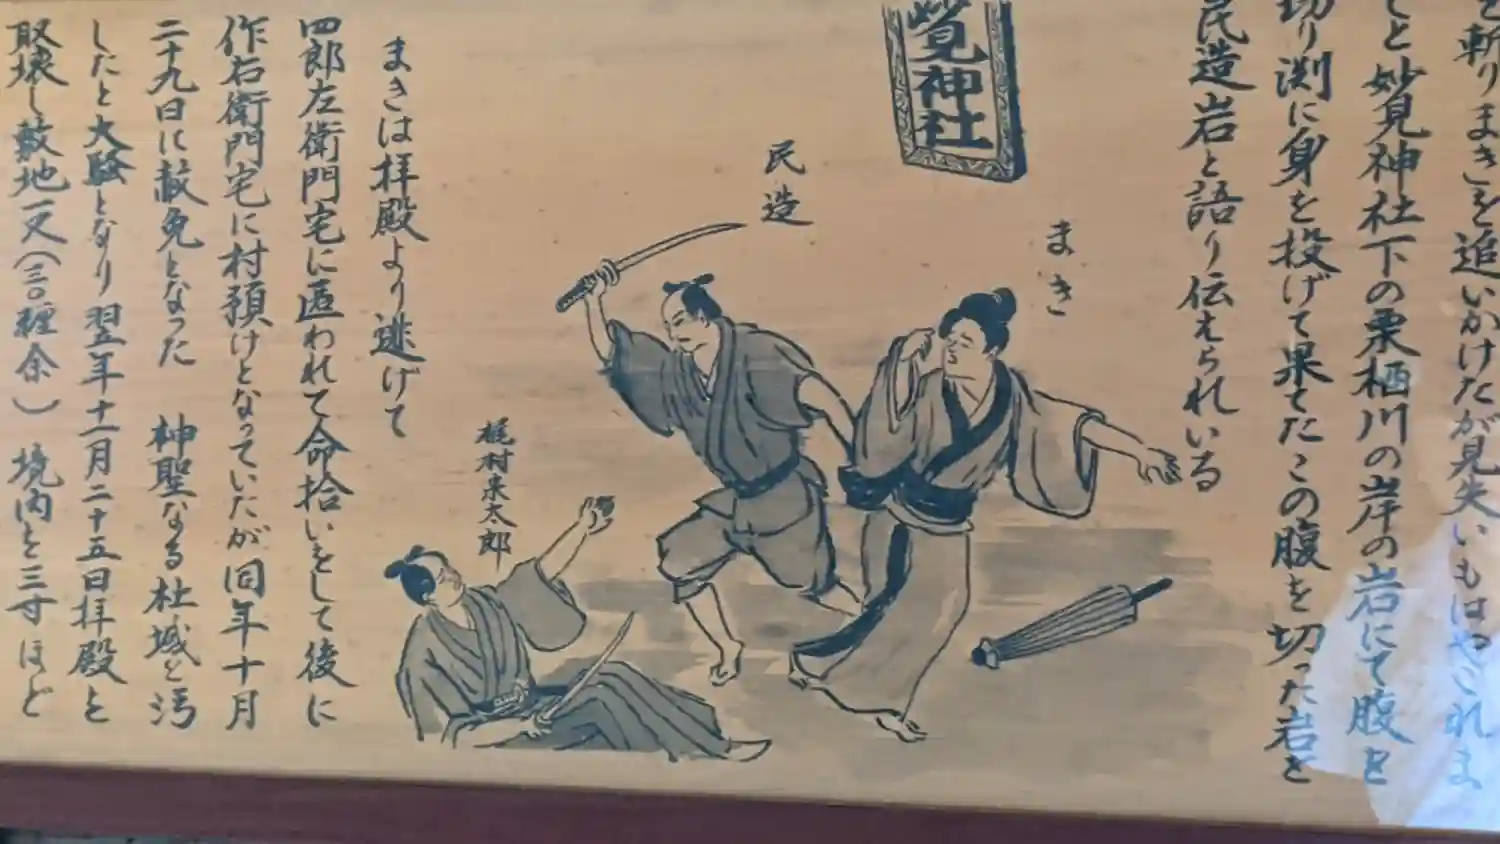 を斬りまきを追いかけたが見失いもはやこれま
でと妙見神社下の栗栖川の岸の岩にて腹を
切り渕に身を投げて果てたこの腹を切った岩を
民造岩と語り伝えられいる
見神社
まき
民造
梶村来太郎
まきは拝殿より逃げて
四郎左衛門宅に匿われて命拾いをして後に
作右衛門宅に村預けとなっていたが同年十月
二十九日に赦免となった 神聖なる社域を汚
したと大騒となり翌年十一月二十五日拝殿と
取壊し敷地一又(三〇糎余) 境内を三寸ほど